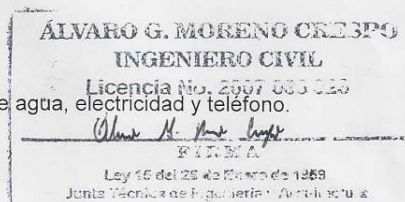 ÁLVARO G. MORENO CRESPO
INGENIERO CIVIL
Licencia No. 2007
e agua, electricidad y teléfono.
FIRMA
Ley 15 del 26 de Enero de 1959
Junta Técnica de Ingeniería y Arquitectura